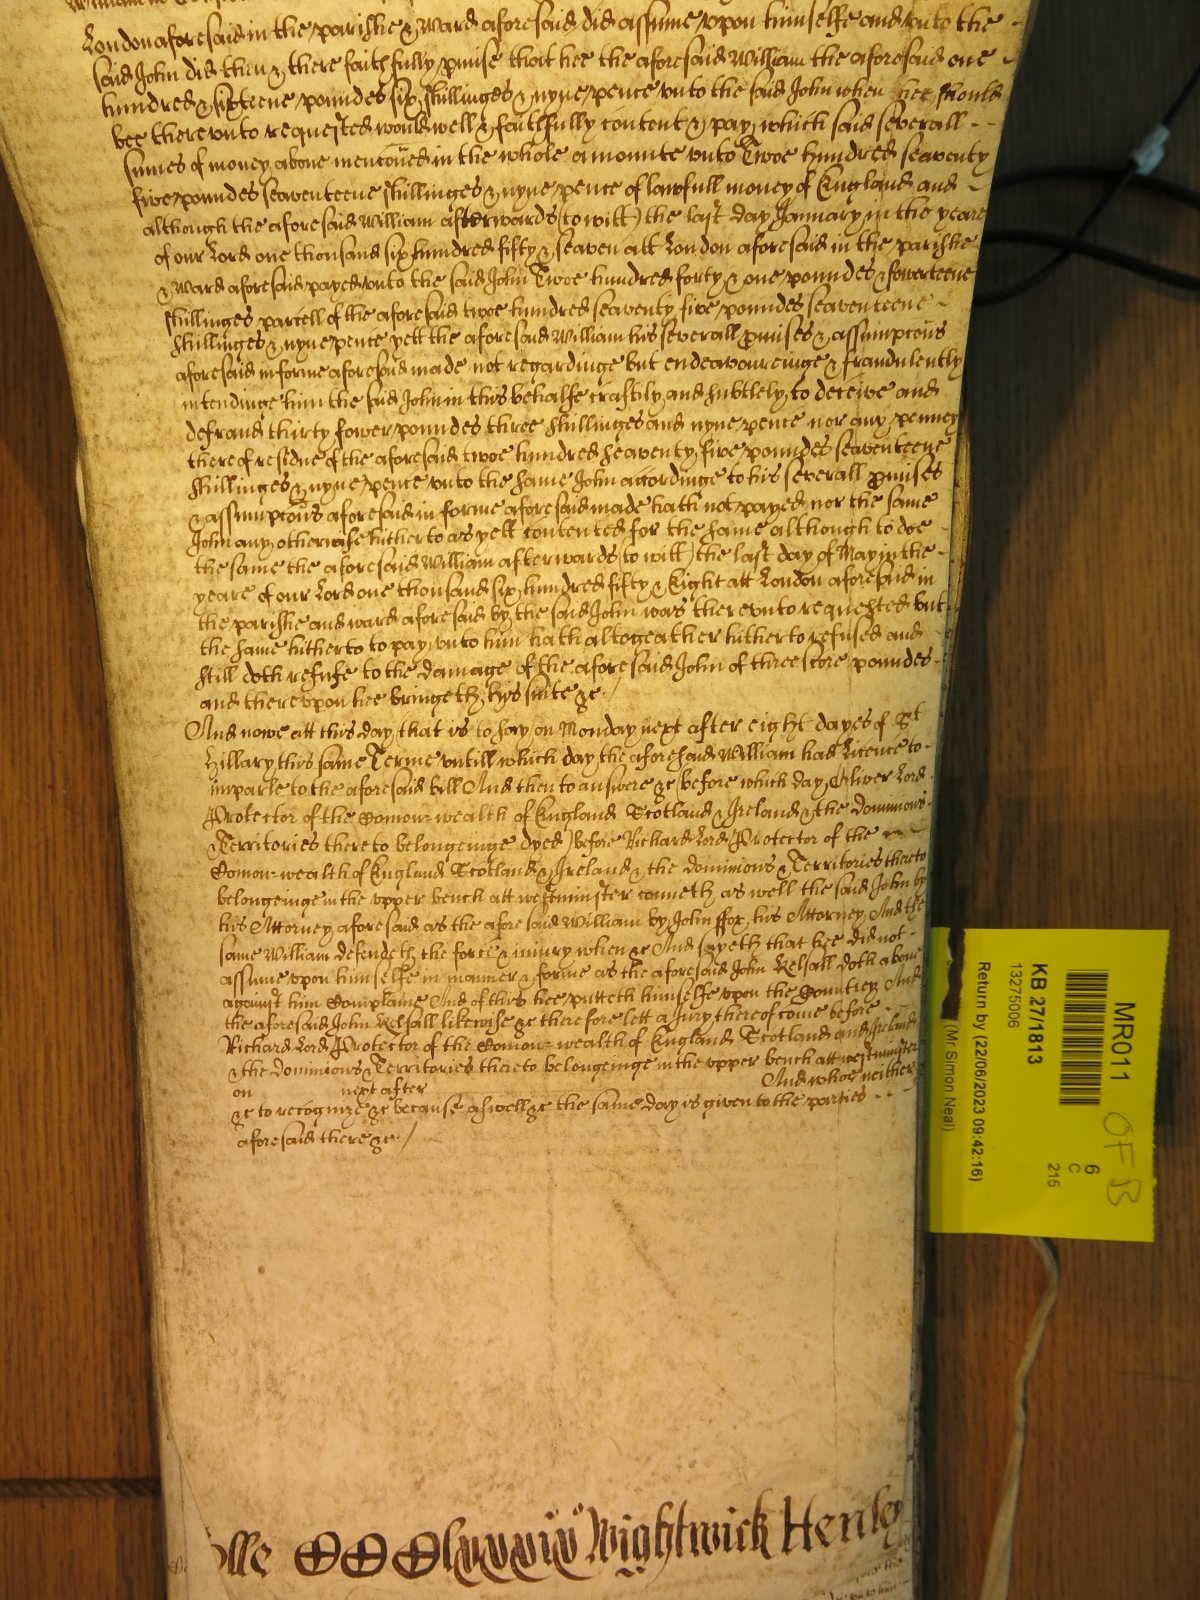 London aforesaid in the parishe & ward aforesaid did assume upon himselfe and unto the
said John did then & there faithfully pmise that hee the aforesaid William the aforesaid one
hundred & sixteene poundes six shillinges & nyne pence unto the said John when hee should
bee thereunto requested would well & faithfully content & pay, which said severall
sumes of money above menconed in the whole amounte unto Twoe hundred seaventy
five poundes seaventeene shillinges & nyne pence of lawfull money of England and
although the aforesaid William afterwards (to witt) the last day January in the yeare
of our Lord one thousand six hundred fifty & seaven att London aforesaid in the parishe
& ward aforesaid payed unto the said John Twoe hundred forty & one poundes & fowerteene
shillinges parcell of the aforesaid twoe hundred seaventy five poundes seaventeene
shillinges & nyne pence yett the aforesaid William his severall pmises & assumpcons
aforesaid in forme aforesaid made not regardinge but endeavoureinge & fraudulently
intendinge him the said John in this behalfe craftily and subtlely to deceive and
defraud thirty fower poundes three shillinges and nyne pence nor any penney
thereof residue of the aforesaid twoe hundred seaventy five poundes seaventeene
shillinges & nyne pence unto the same John accordinge to his severall pmises
& assumpcons aforesaid in forme aforesaid made hath not payed nor the same
John any otherwise hitherto as yett contented for the same although to doe
the same the aforesaid William afterwards (to witt) the last day of May in the
yeare of our Lord one thousand six hundred fifty & Eight att London aforesaid in
the parishe and ward aforesaid by the said John was thereunto requested but
the same hitherto to pay unto him hath altogeather hitherto refused and
still doth refuse to the damage of the aforesaid John of threescore poundes
and thereupon hee bringeth hys suite &c
And nowe att this day, that is to say, on Monday next after eight dayes of St
Hillary this same Terme untill which day the aforesaid William had licence to
imparle to the aforesaid bill And then to answere &c before which day, Oliver Lord
Protector of the Comon-wealth of England Scotland & Ireland & the dominions
& Territories thereto belongeinge dyed, before Richard Lord Protector of the
Comon-wealth of England Scotland & Ireland & the dominions & Territories thereto
belongeinge in the upper bench att westminster cometh as well the said John by
his Attorney aforesaid as the aforesaid William by John ffox his Attorney, And the
same William defendeth the force & injury when &c And sayeth that hee did not
assume upon himselfe in manner & forme as the aforesaid John Kelsall doth above
against him Complaine And of this hee putteth himselfe upon the Countrey And
the aforesaid John Kelsall likewise &c therefore lett a Jury thereof come before
Richard Lord Protector of the Comon-wealth of England Scotland and Ireland
& the dominions & Territories thereto belongeinge in the upper bench att westminster
on next after And whoe neither
&c to recognize &c because aswell &c the same day is given to the parties
aforesaid there &c
Wightwick Henley
MR011
OFB
6
C
215
KB 27/1813
13275006
Return by (22/06/2023 09:42:16)
(Mr Simon Neal)